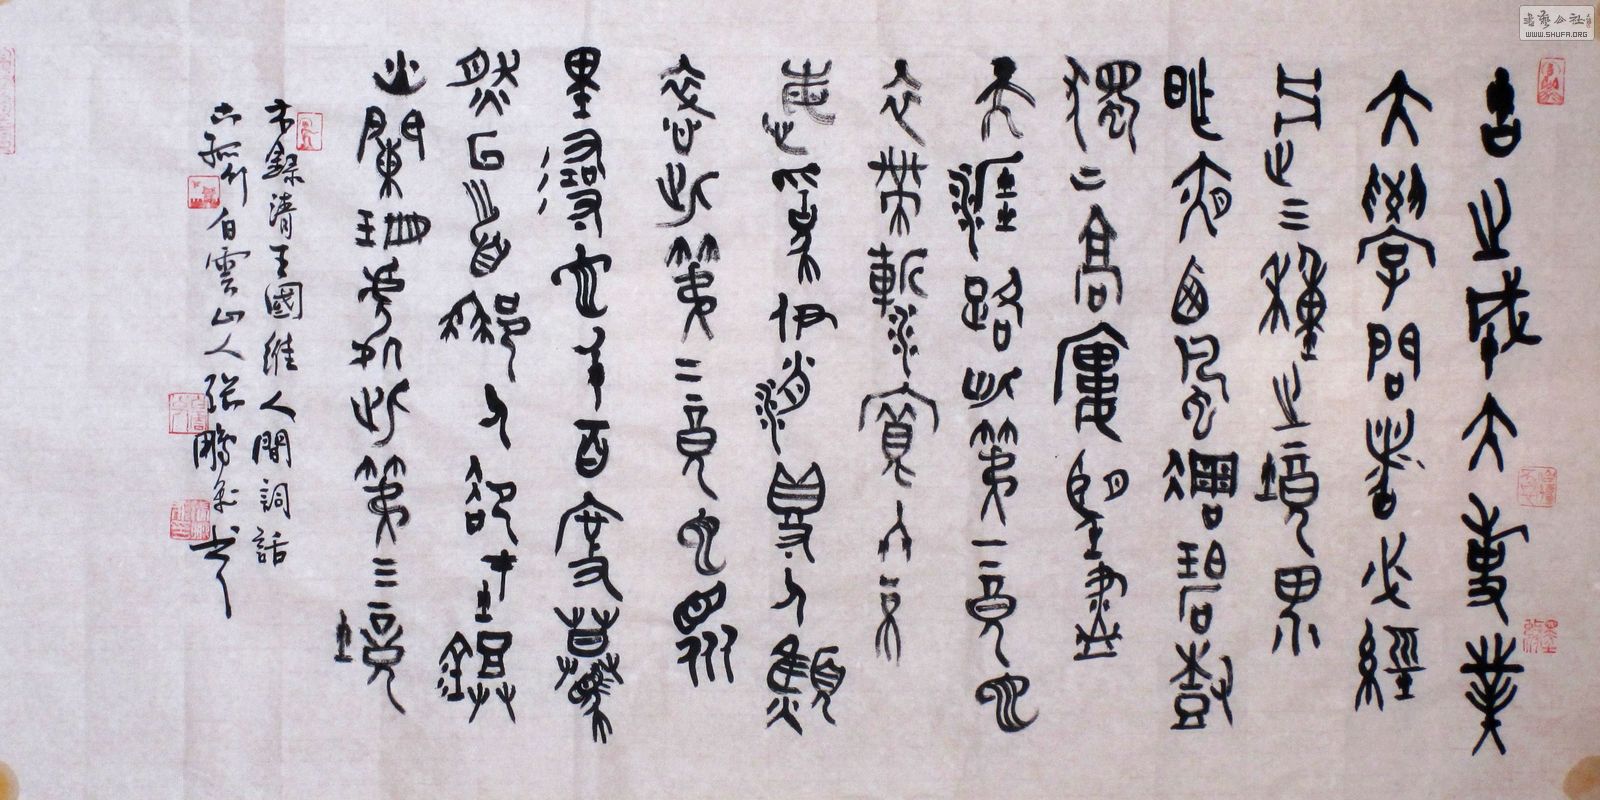 古之成大事業
大學問者必經
三種之境界
昨夜西風凋碧樹
獨上高樓望盡
天涯路此第一境也
衣帶漸寬終不
悔為伊消得人憔
悴此第二境也眾
里尋它千百度驀
然回首那人卻在鐙
火闌珊處此第三境
節錄清王國維人間詞話
古孤竹白雲山人張鵬書
書藝公社
WWW.SHUFA.ORG